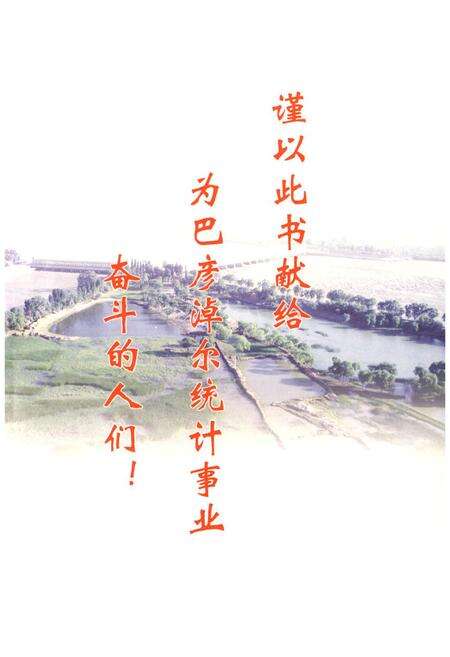 谨以此书献给
为巴彦淖尔统计事业
奋斗的人们！